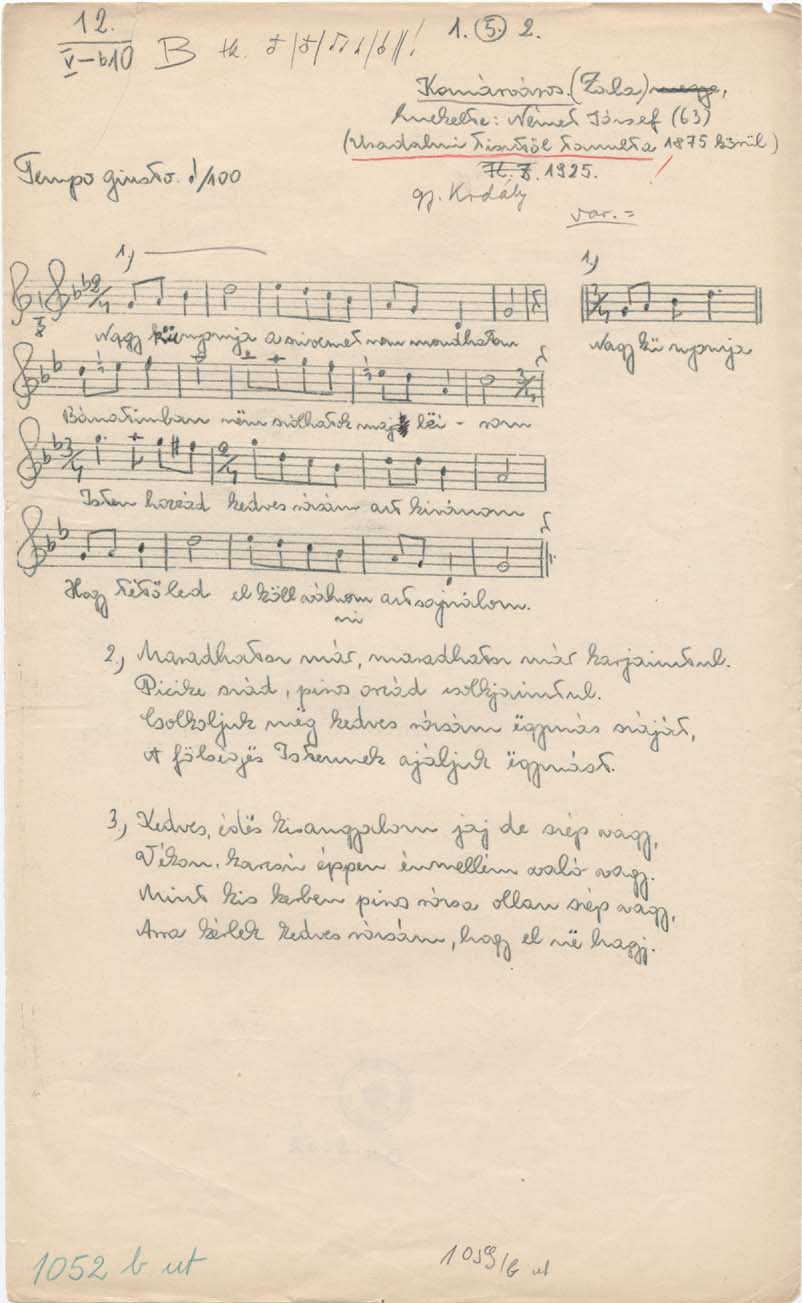 12.
V–b10 B tk. 1. 5. 2.
Komárváros. (Zala) megye,
énekelte: Német József (63)
(Uradalmi tisztől tanulta 1875 körül)
Tempo giusto. /100
1925.
gy. Kodály
var. =
1,) 1,)
Nagy künnynyja a szivemet nem mondhatom Nagy kü nynyja
Bánatimban nëm szólhatok maj lëi - rom
Isten hozzád kedves rózsám azt kivánom
Hogy tétőled el köll válnom azt sajnálom.
ni
2,) Maradhatsz már, maradhatsz már karjaimtul.
Picike szád, piros orcád csolkjaimtul.
Csolkoljuk mëg kedves rózsám ëgymás száját,
A fölségës Istennek ajáljuk ëgymást.
3,) Kedves, édës kisangyalom jaj de szép vagy,
Vékon, karcsú éppen énmellém való vagy.
Mint kis kerben piros rózsa ollan szép vagy,
Arra kérlek kedves rózsám, hogy el në hagyj.
1052 b ut
1059/b ut